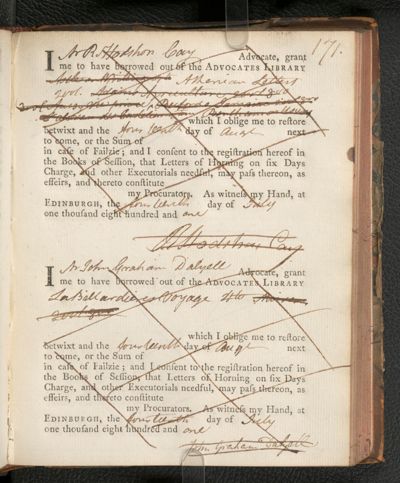 171.
I Mr R. Hodshon Cay Advocate, grant
me to have borrowed out of the ADVOCATES LIBRARY
Athenian Letters
2 vol.
which I oblige me to restore
betwixt and the fourteenth day of Augt next
to come, or the Sum of
in case of Failzie; and I consent to the registration hereof in
the Books of Session, that Letters of Horning on six Days
Charge, and other Executorials needful, may pass thereon, as
effeirs, and thereto constitute
my Procurators. As witness my Hand, at
EDINBURGH, the fourteenth day of July
one thousand eight hundred and one
R Hodshon Cay
I Mr John Graham Dalyell Advocate, grant
me to have borrowed out of the ADVOCATES LIBRARY
La Billardieres Voyage 4to
which I oblige me to restore
betwixt and the fourteenth day of Augt next
to come, or the Sum of
in case of Failzie; and I consent to the registration hereof in
the Books of Session, that Letters of Horning on six Days
Charge, and other Executorials needful, may pass thereon, as
effeirs, and thereto constitute
my Procurators. As witness my Hand, at
EDINBURGH, the fourteenth day of July
one thousand eight hundred and one
John Graham Dalyell